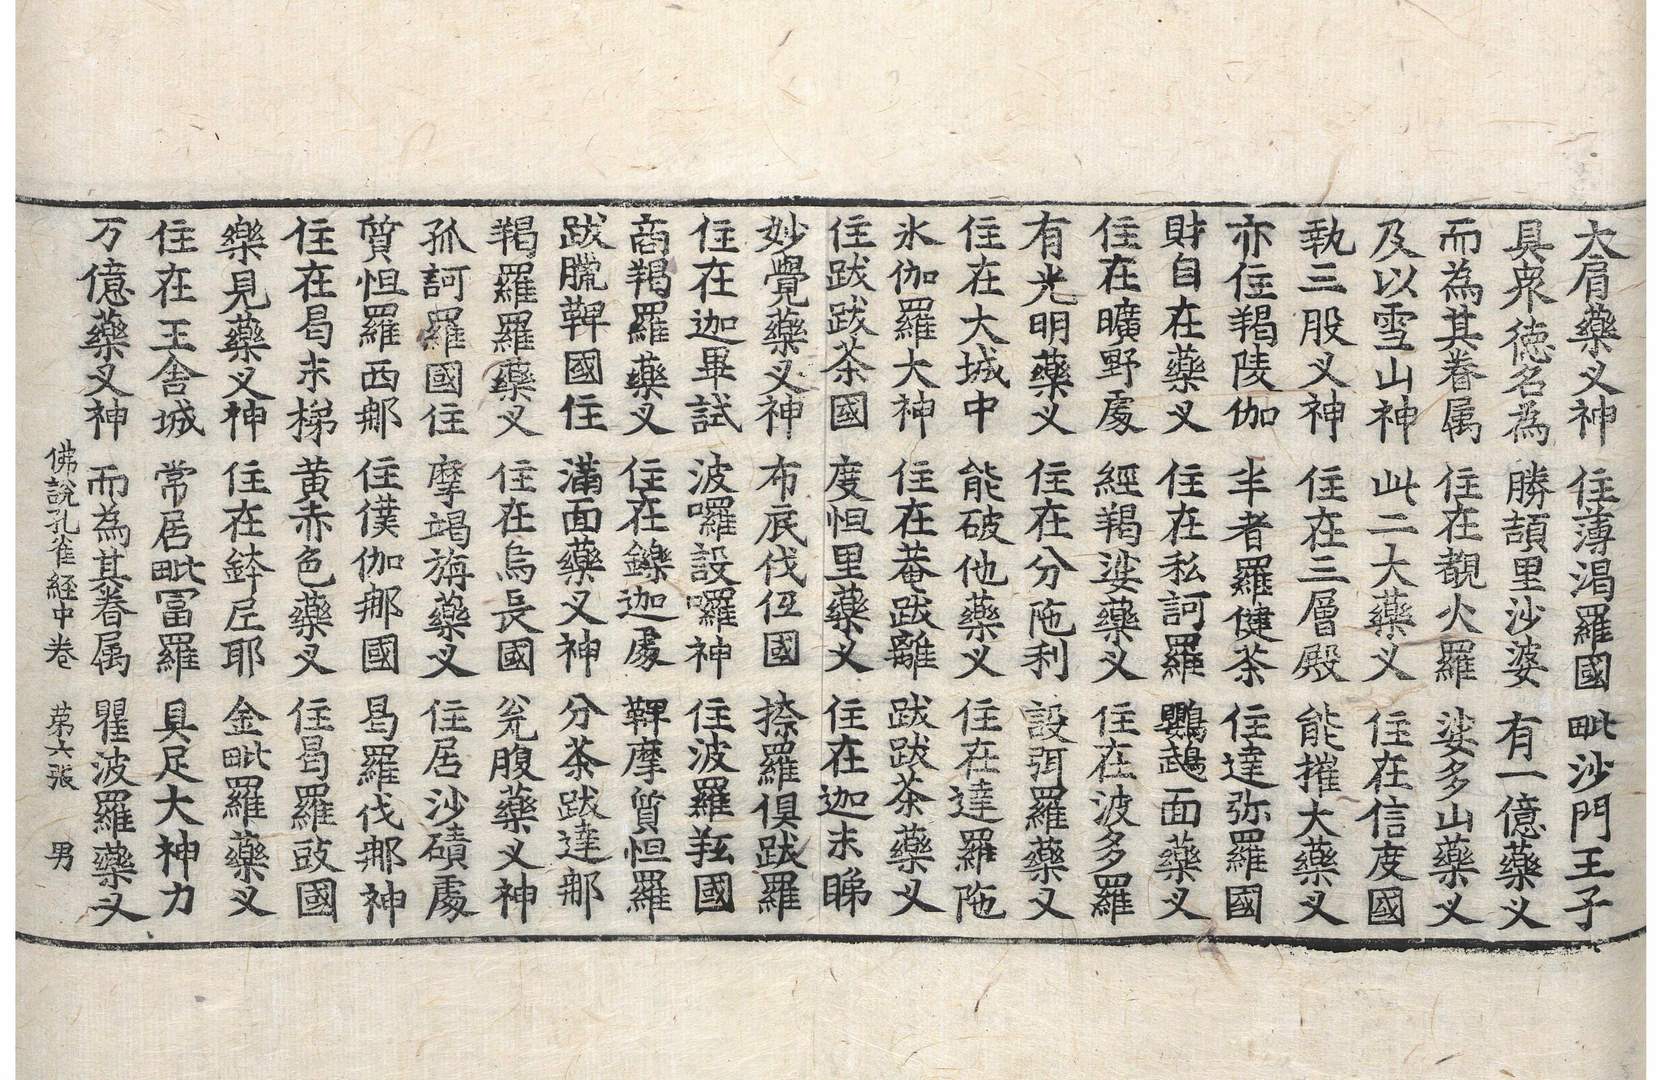 大肩藥叉神 住薄渴羅國 毗沙門王子
具衆徳名為 勝頡里沙婆 有一億藥叉
而為其眷属 住在覩火羅 娑多山藥叉
及以雪山神 此二大藥叉 住在信度國
執三股叉神 住在三層殿 能摧大藥叉
亦住羯陵伽 半者羅健荼 住達弥羅國
財自在藥叉 住在私訶羅 鸚鵡面藥叉
住在曠野處 經羯娑藥叉 住在波多羅
有光明藥叉 住在分陁利 設弭羅藥叉
住在大城中 能破他藥叉 住在達羅陁
氷伽羅大神 住在菴跋離 跋跋荼藥叉
住跋跋荼國 度怛里藥叉 住在迦末睇
妙覺藥叉神 布底伐伍國 捺羅俱跋羅
住在迦畢試 波囉設囉神 住波羅䍧國
商羯羅藥叉 住在鑠迦處 鞞摩質怛羅
跋臈鞞國住 滿面藥叉神 分荼跋達那
羯羅羅藥叉 住在烏長國 瓮腹藥叉神
孤訶羅國住 摩竭旃藥叉 住居沙磧處
質怛羅西那 住僕伽那國 曷羅伐那神
住在曷末梯 黄赤色藥叉 住曷羅䜴國
樂見藥叉神 住在鉢𡰱耶 金毗羅藥叉
住在王舎城 常居毗冨羅 具足大神力
万億藥叉神 而為其眷属 瞿波羅藥叉
佛説孔雀經中卷 苐六张 男